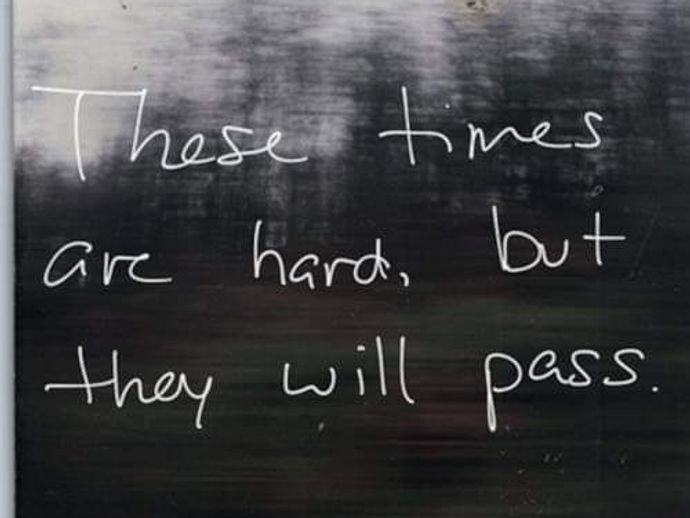 These times
are hard, but
they will pass.